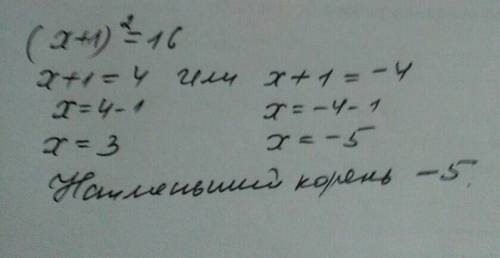 (x+1)²=16
x+1=4 или x+1=-4
x=4-1 x=-4-1
x=3 x=-5
Наименьший корень -5.